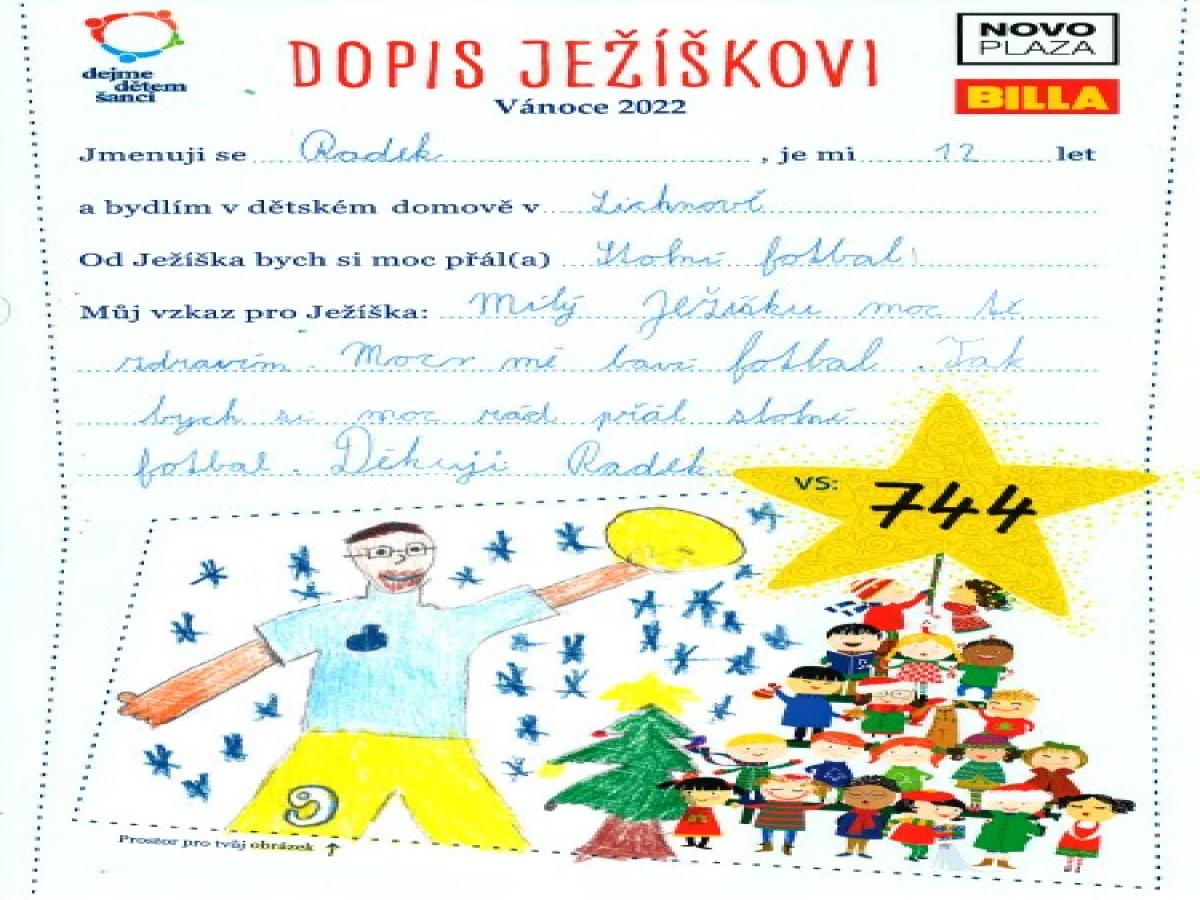 dejme
dětem
šanci
DOPIS JEŽÍŠKOVI
NOVO
PLAZA
BILLA
Vánoce 2022
Jmenuji se Radek, je mi 12 let
a bydlím v dětském domově v Lichnově
Od Ježíška bych si moc přál(a) Stolní fotbal
Můj vzkaz pro Ježíška: Milý Ježíšku moc tě
zdravím. Moc mě baví fotbal. Tak
bych si moc rád přál stolní
fotbal. Děkuji Radek.
VS: 744
Prostor pro tvůj obrázek ↑